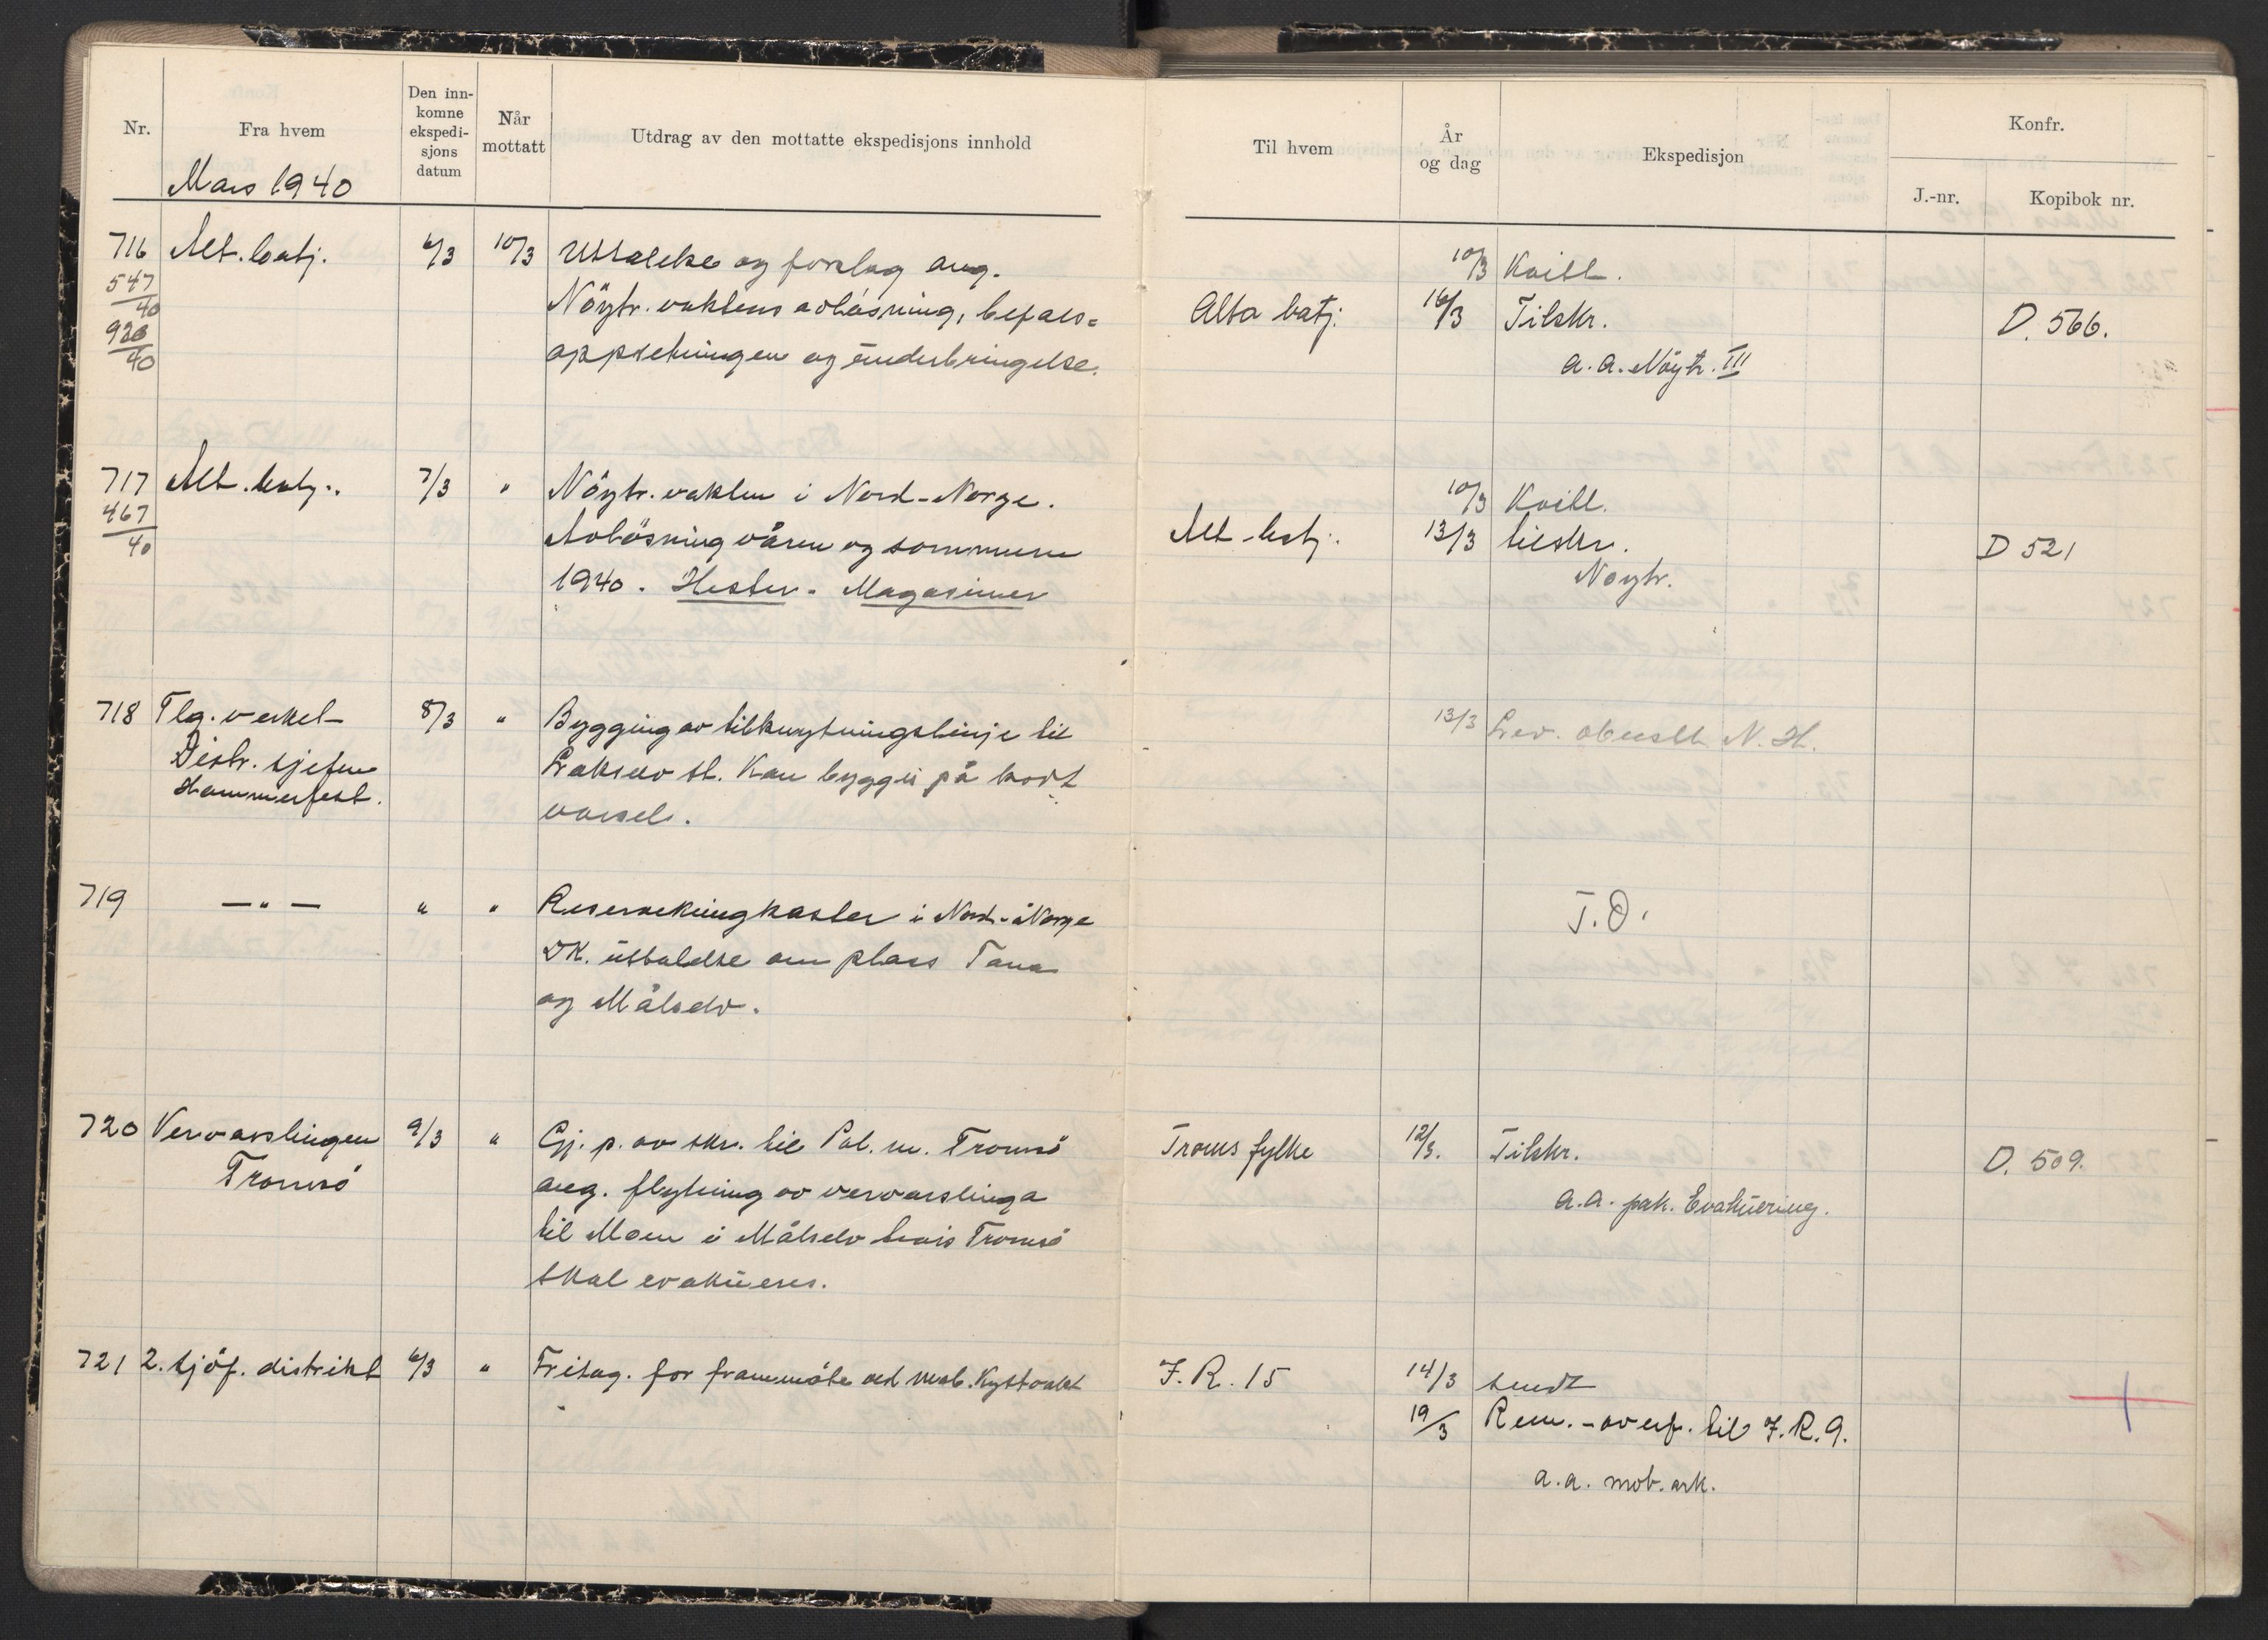 Nr.
Fra hvem
Den inn-
komne
ekspedi-
sjons
datum
Når
mottatt
Utdrag av den mottatte ekspedisjons innhold
Til hvem
År
og dag
Ekspedisjon
Konfr.
J.-nr.
Kopibok nr.
Mars 1940
716 Alt. batj. 6/3 10/3 Uttalelse og forslag ang. 10/3 Kvitt.
547/40 Nöytr. vaktens avlösning, befals= Alta batj. 16/3 Tilskr. D. 566.
928/40 oppsetningen og underbringelse. a. a. Nöytr. III
717 Alt. batj. 7/3 " Nöytr. vakten i Nord-Norge. 10/3 Kvitt.
467/40 Avlösning våren og sommeren Alt. batj. 13/3 tilskr. D 521
1940. Hester. Magasiner Nöytr.
718 Tlg. verket 8/3 " Bygging av tilknytningslinje til 13/3 Lev. oberstl. N. H.
Distr. sjefen Lakselv st. Kan bygges på kort
Hammerfest. varsel.
719 — " — " " Reservekringkaster i Nord-Norge T.O.
DK. uttalelse om plass Tana
og Målselv.
720 Vervarslingen 9/3 " Gj. p. av skr. til Pol. m. Tromsö Troms fylke 12/3. Tilskr. D. 509.
Tromsö ang. flytning av vervarslinga a. a. pak. Evakuering.
til Moen i Målselv hvis Tromsö
skal evakueres.
721 2. sjöf. distrikt 6/3 " Fritag. for frammöte ved mob. Kystvakt J. R. 15 14/3 sendt
19/3 Rem. - overf. til J. R. 9.
a. a. mob. ark.